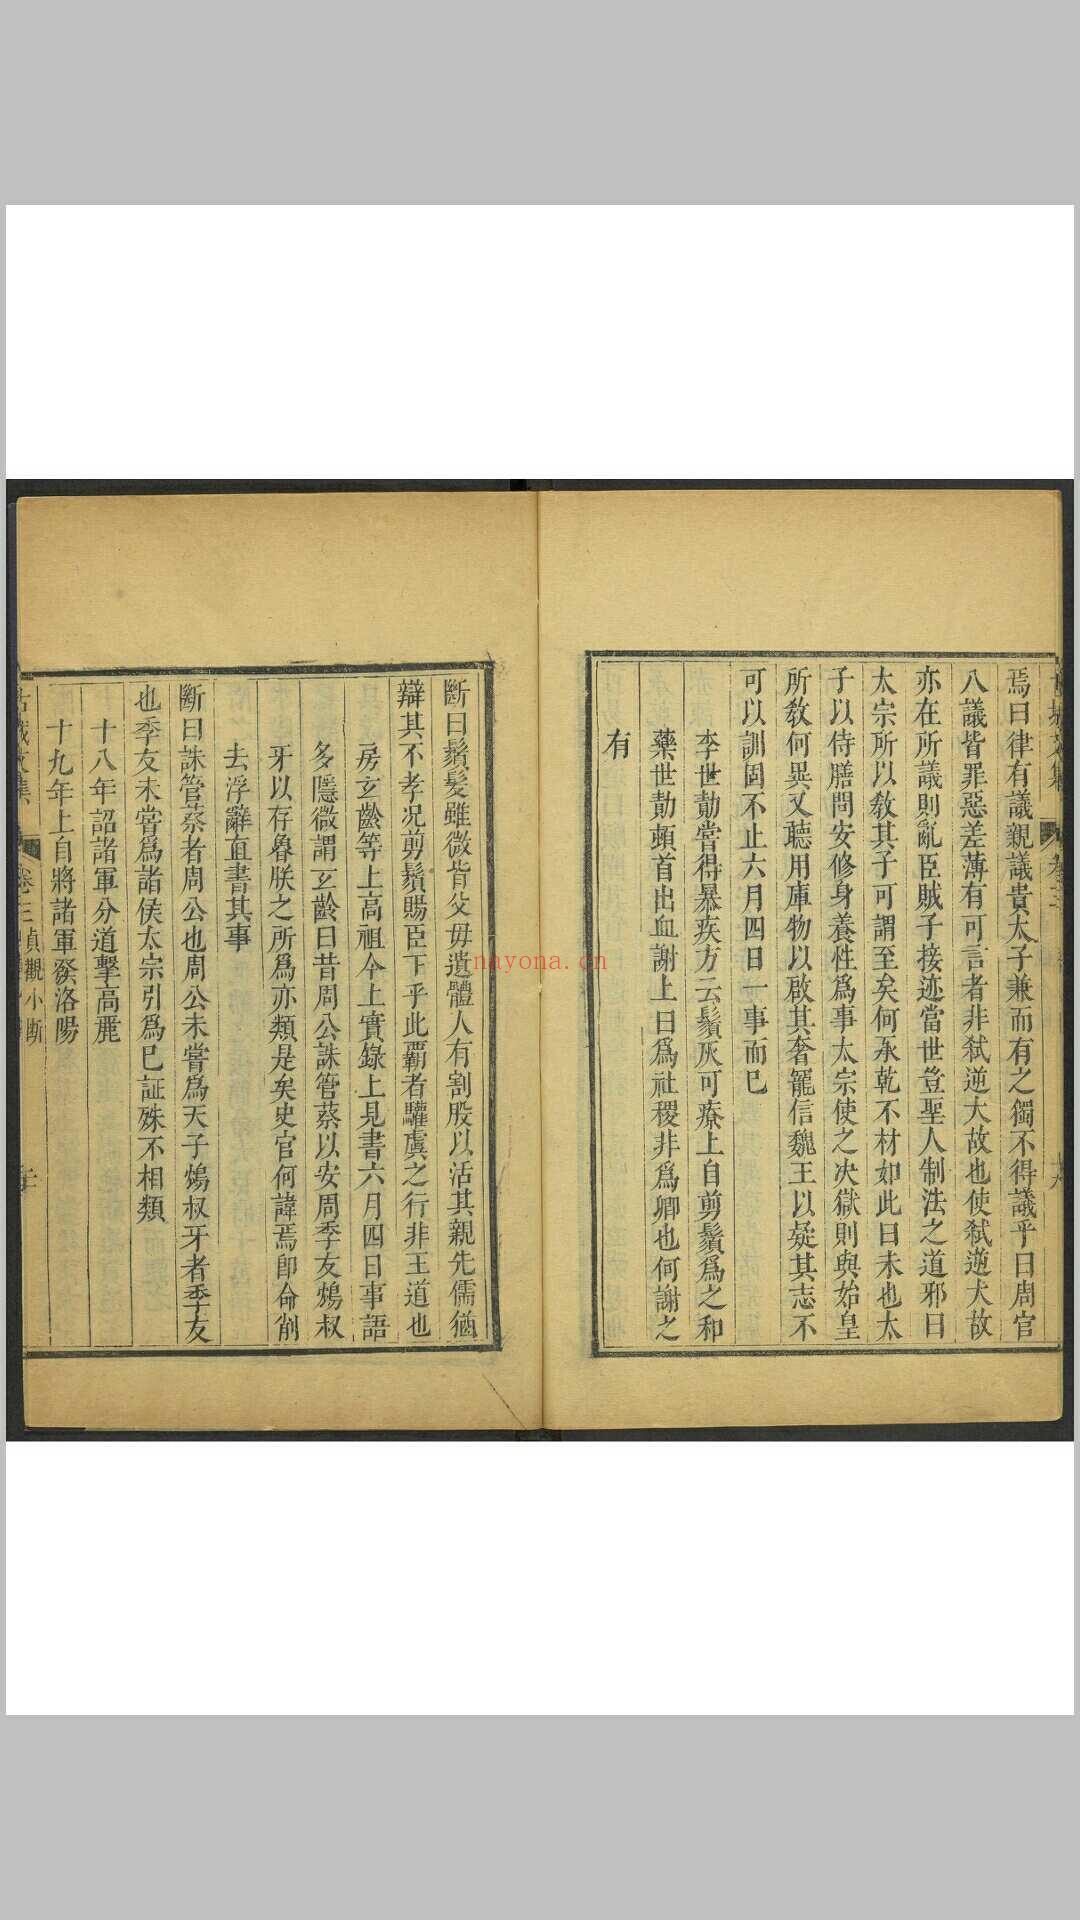 焉曰律有議親議貴太子兼而有之獨不得議乎曰周官
八議皆罪惡差薄有可言者非弑逆大故也使弑逆大故
亦在所議則亂臣賊子接迹當世豈聖人制法之道邪曰
太宗所以敎其子可謂至矣何承乾不材如此曰未也太
子以侍膳問安修身養性爲事太宗使之决獄則與始皇
所敎何異又聽用庫物以啟其奢寵信魏王以疑其志不
可以訓固不止六月四日一事而已
李世勣嘗得暴疾方云鬚灰可療上自剪鬚爲之和
藥世勣頓首出血謝上曰爲社稷非爲卿也何謝之
有
斷曰鬚髮雖微皆父毋遺體人有割股以活其親先儒猶
辯其不孝况剪鬚賜臣下乎此覇者驩虞之行非王道也
房玄齡等上高祖今上實錄上見書六月四日事語
多隱微謂玄齡曰昔周公誅管蔡以安周季友鴆叔
牙以存魯朕之所爲亦類是矣史官何諱焉卽命削
去浮辭直書其事
斷曰誅管蔡者周公也周公未嘗爲天子鴆叔牙者季友
也季友未嘗爲諸侯太宗引爲已証殊不相類
十八年詔諸軍分道擊高麗
十九年上自將諸軍發洛陽
卷三 貞觀小斷
nayona.cn